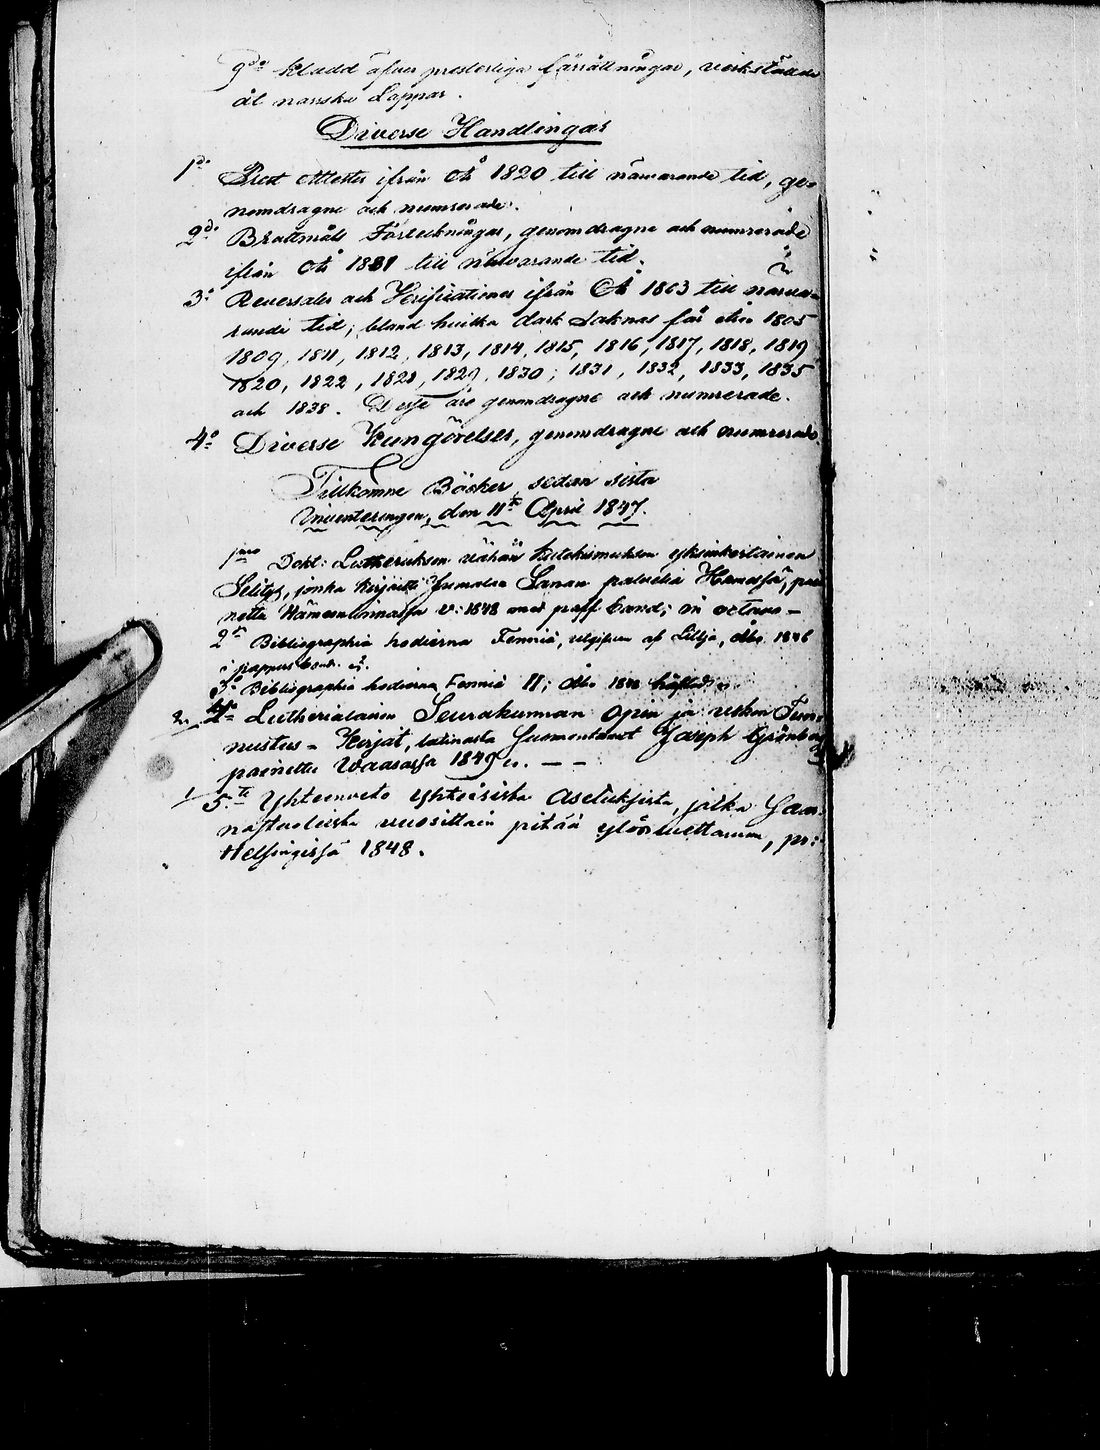 9do Kladd öfver presterliga förrättningar, verkställde
åt norrska Lappar.
Diverse Handlingar
1o Prest Attester ifrån År 1820 till närvarande tid, ge-
nomdragne och numrerade.
2do Brottmåls Förteckningar, genomdragne och numrerade
ifrån År 1831 till närvarande tid.
3o Reversaler och Verifikationer ifrån År 1803 till närva-
rande tid; bland hvilka dock saknas för åren 1805
1809, 1811, 1812, 1813, 1814, 1815, 1816, 1817, 1818, 1819
1820, 1822, 1828, 1829, 1830, 1831, 1832, 1833, 1835
och 1838. Desse äro genomdragne och numrerade.
4o Diverse Kungörelser, genomdragne och numrerade
Tillkomne Böcker sedan sista
Inventeringen, den 11te April 1847.
1mo Dokt: Lutheruksen vähän Katekismuksen yksinkertainen
Selitys, jonka Kirjoitti Jumalan Sanan palvelia Hämessä, pai-
nettu Hämeenlinnassa v: 1848 med papp band; in octavo -
2o Bibliographia hodierna Fenniæ, utgifven af Lillja, Åbo 1846
i pappers band.
3o Bibliographia hodierna Fenniæ II; Åbo 1848 häftad
2. 4o Lutherialainen Seurakunnan Opin ja uskon Tun-
nustus-Kirjat, latinasta Suomentanut Joseph Grönberg
painettu Waasassa 1849. - -
1 5te Yhteenveto yhteisista Asetuksista, jotka Saar-
nastuoleista vuosittain pitää ylösluettaman, pr:
Helsingissä 1848.